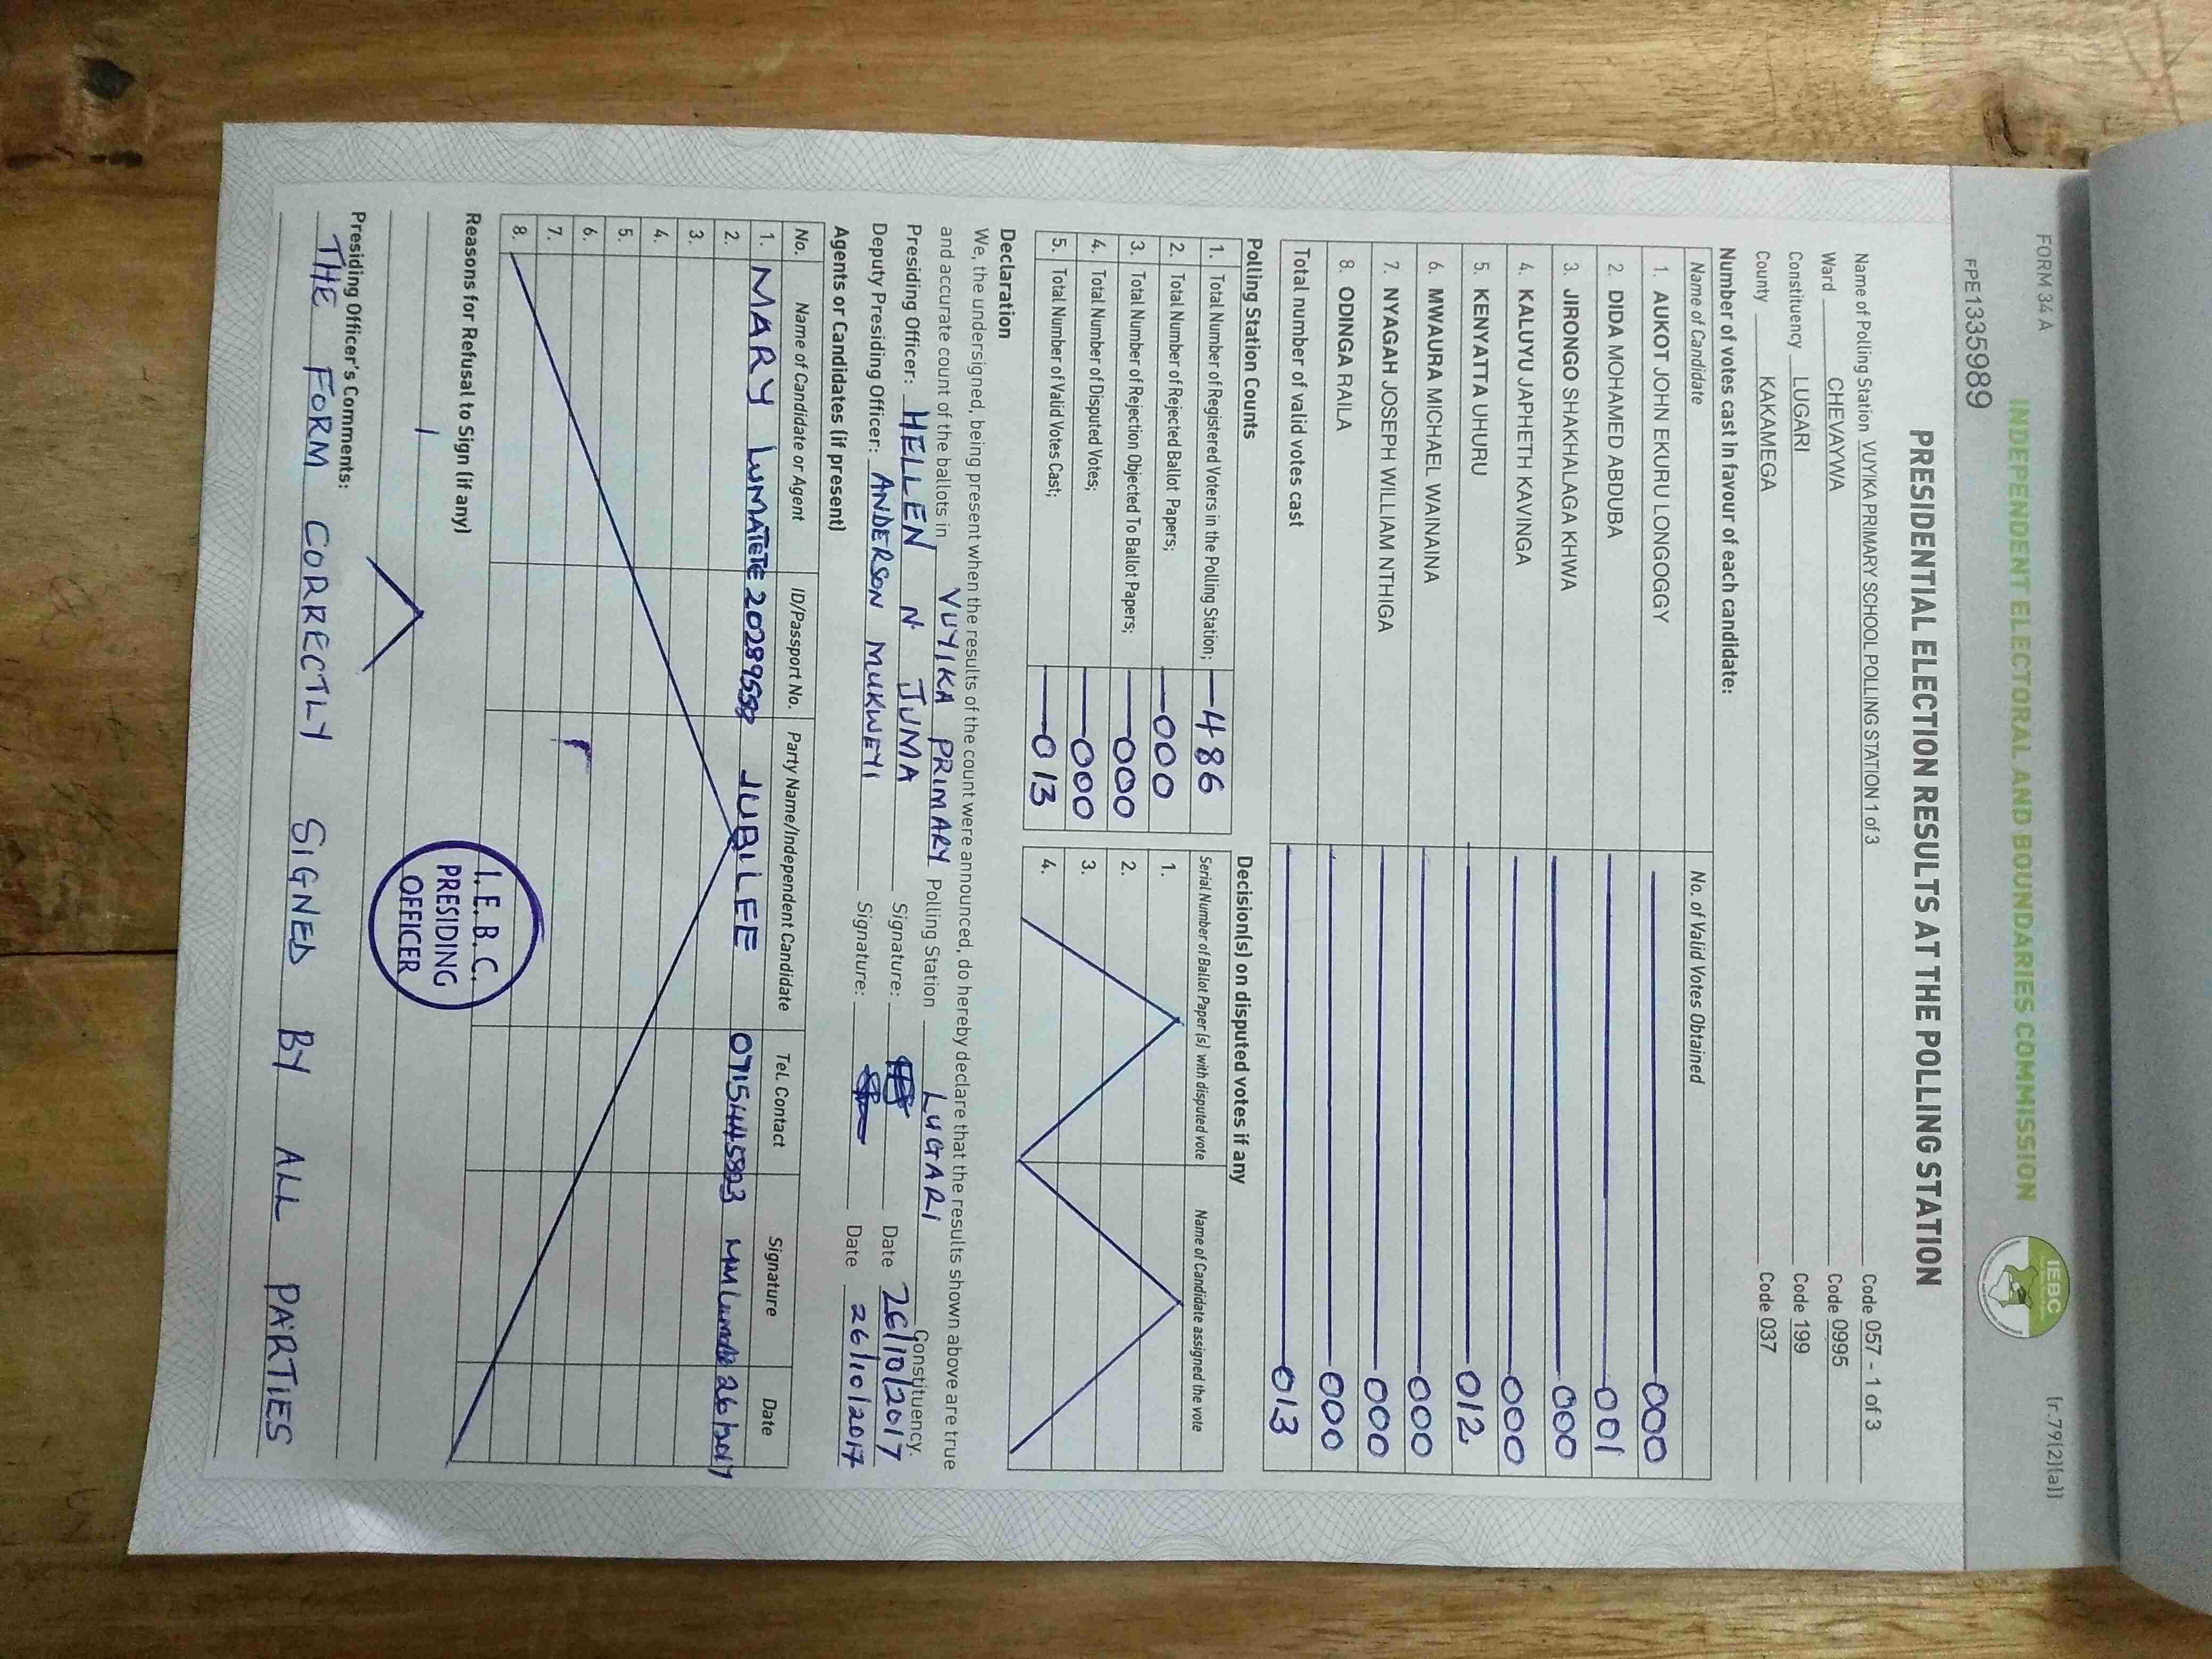 FORM 34 A
(r.79(2)(a))
INDEPENDENT ELECTORAL AND BOUNDARIES COMMISSION
IEBC
FPE1335989
PRESIDENTIAL ELECTION RESULTS AT THE POLLING STATION
Name of Polling Station VUYIKA PRIMARY SCHOOL POLLING STATION 1 of 3 Code 057 - 1 of 3
Ward CHEVAYWA Code 0995
Constituency LUGARI Code 199
County KAKAMEGA Code 037
Number of votes cast in favour of each candidate:
Name of Candidate No. of Valid Votes Obtained
1. AUKOT JOHN EKURU LONGOGGY 000
2. DIDA MOHAMED ABDUBA 001
3. JIRONGO SHAKHALAGA KHWA 000
4. KALUYU JAPHETH KAVINGA 000
5. KENYATTA UHURU 012
6. MWAURA MICHAEL WAINAINA 000
7. NYAGAH JOSEPH WILLIAM NTHIGA 000
8. ODINGA RAILA 000
Total number of valid votes cast 013
Polling Station Counts
1. Total Number of Registered Voters in the Polling Station; 486
2. Total Number of Rejected Ballot Papers; 000
3. Total Number of Rejection Objected To Ballot Papers; 000
4. Total Number of Disputed Votes; 000
5. Total Number of Valid Votes Cast; 013
Decision(s) on disputed votes if any
Serial Number of Ballot Paper (s) with disputed vote Name of Candidate assigned the vote
1.
2.
3.
4.
Declaration
We, the undersigned, being present when the results of the count were announced, do hereby declare that the results shown above are true
and accurate count of the ballots in VUYIKA PRIMARY Polling Station LUGARI Constituency.
Presiding Officer: HELLEN N. JUMA Signature: Date 26/10/2017
Deputy Presiding Officer: ANDERSON MUKWEYI Signature: Date 26/10/2017
Agents or Candidates (if present)
No. Name of Candidate or Agent ID/Passport No. Party Name/Independent Candidate Tel. Contact Signature Date
1. MARY LUMATETE JUBILEE
2.
3.
4.
5.
6.
7.
8.
Reasons for Refusal to Sign (if any)
I.E.B.C.
PRESIDING
OFFICER
Presiding Officer's Comments:
THE FORM CORRECTLY SIGNED BY ALL PARTIES